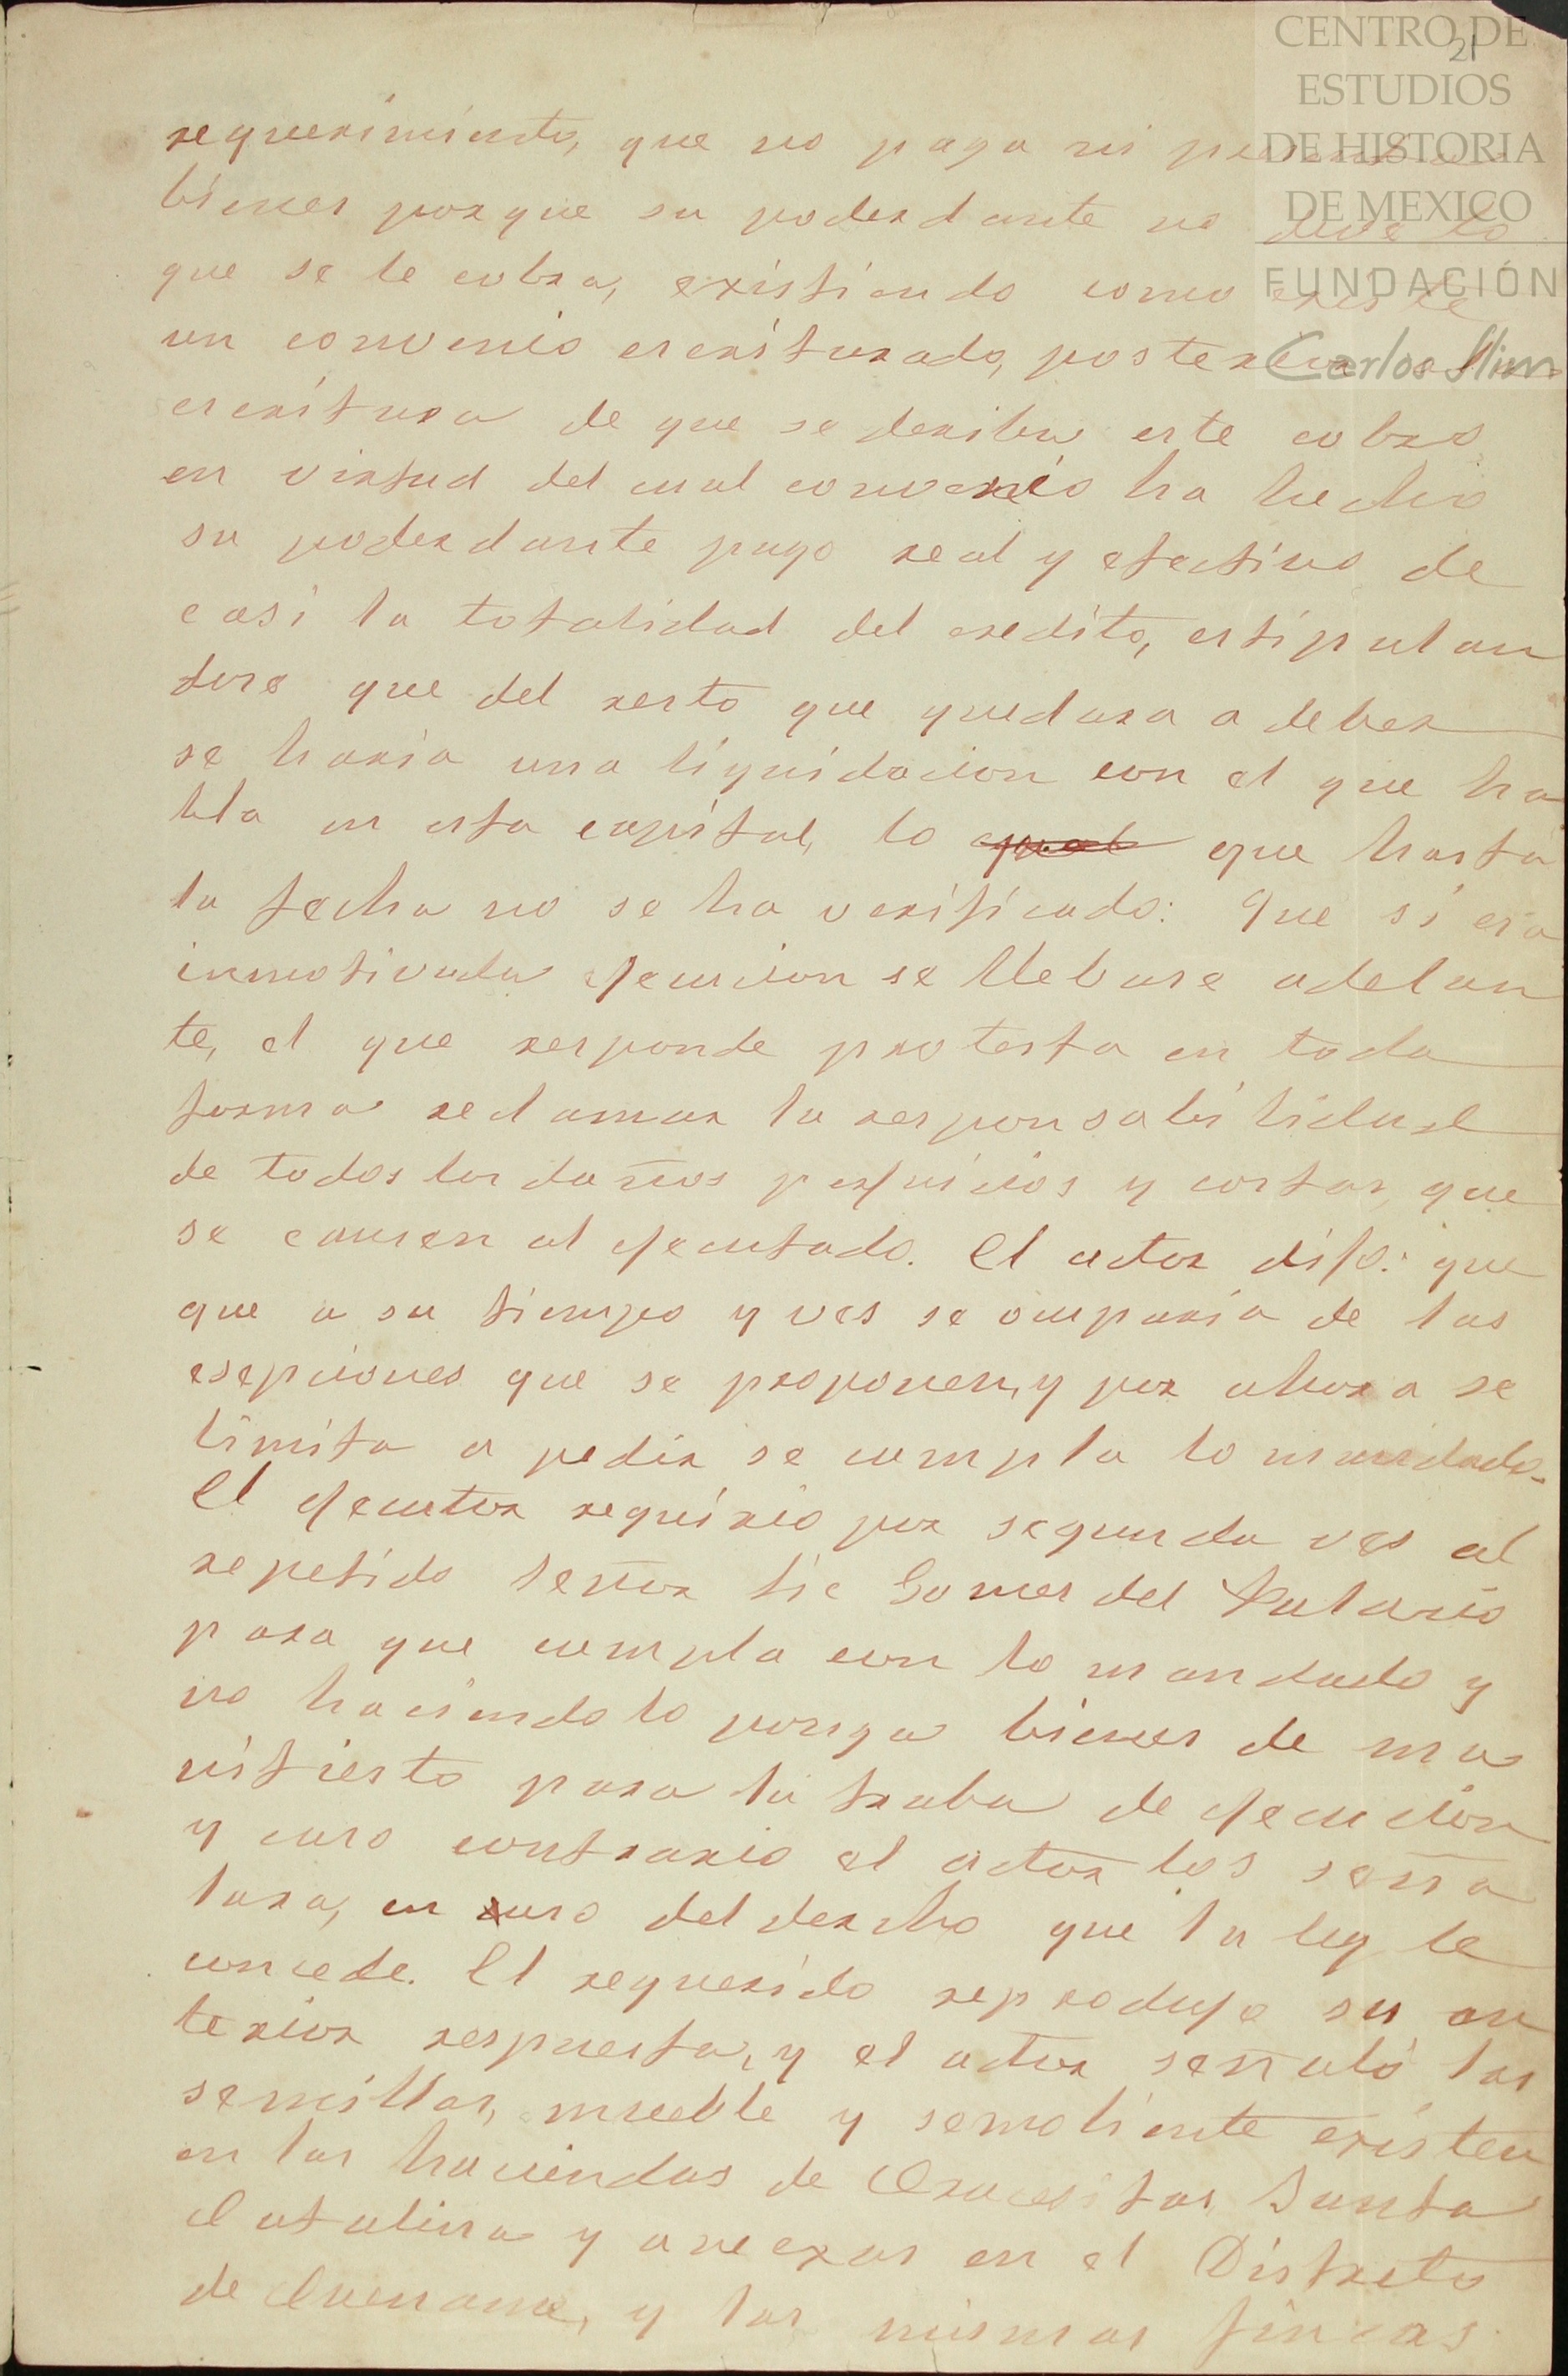 CENTRO DE
ESTUDIOS
DE HISTORIA
DE MEXICO
FUNDACIÓN
Carlos Slim
21
requerimiento, que no paga ni
bienes porque su poderdante no debe lo
que se le cobra, existiendo como existe
un convenio escriturado, posterior a la
escritura de que se deriba este cobro
en virtud del cual convenio ha hecho
su poderdante pago real y efectivo de
casi la totalidad del credito, estipulan
dose que del resto que quedara a deber
se haria una liquidacion con el que ha
bla en esta capital, lo que hasta
la fecha no se ha verificado: Que si esa
inmotivada ejecucion se llebase adelan
te, el que responde protesta en toda
forma reclamar la responsabilidad
de todos los daños perjuicios y costas, que
se causen al ejecutado. El actor dijo: que
que a su tiempo y ves se ocuparia de las
esepciones que se proponen, y por ahora se
limita a pedir se cumpla lo mandado.
El ejecutor requirio por segunda ves al
repetido señor Lic Gomes del Palacio
para que cumpla con lo mandado y
no haciendolo ponga bienes de ma
nifiesto para la traba de ejecucion
y caso contrario el actor los seña
lara, en uso del derecho que la ley le
concede. El requerido reprodujo su an
terior respuesta, y el actor señaló las
semillas, mueble y semoliente existen
en las haciendas de Crucesitas, Santa
Catalina y anexas en el Distrito
de Cuencame, y las mismas fincas